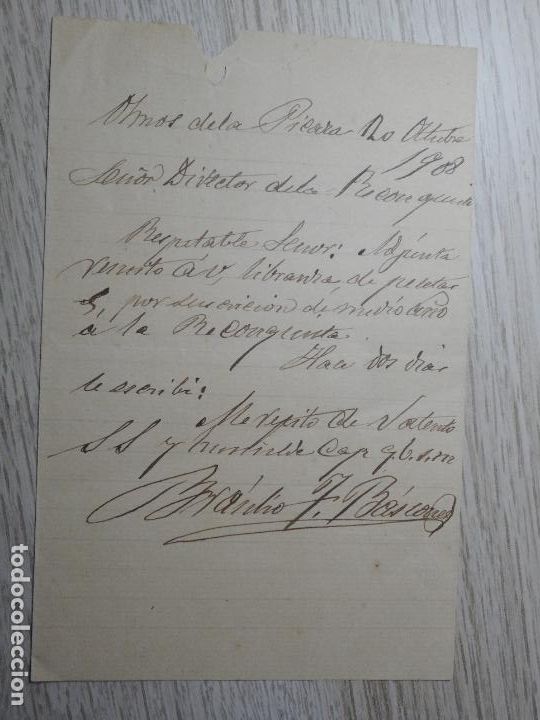 Olmos de la Picaza 20 Octubre
1908
Señor Director de la Reconquista
Respetable Señor: Adjunta
remito á V, libranza de pesetas
5, por suscricion de medio año
á la Reconquista.
Hace dos dias
le escribi:
Me repito de V atento
SS y humilde Cap q. b. s. m
Bráulio F. Báscones
todocoleccion
todocoleccion.net